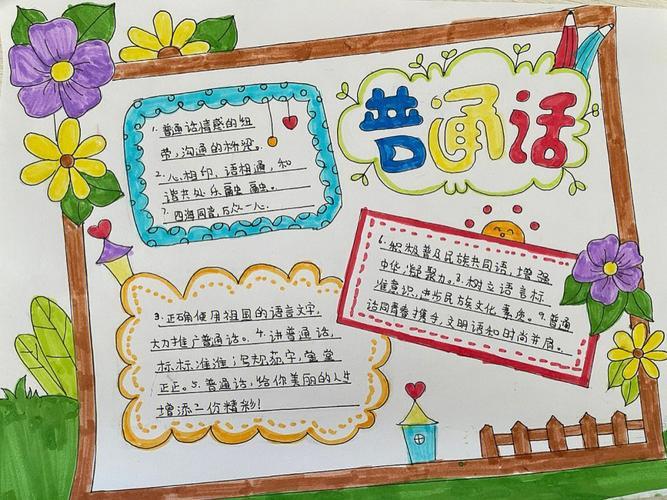 普通话
1. 普通话情感的纽
带，沟通的桥梁。
2. 心相印，语相通，和
谐共处乐融融。
7. 四海同音，万众一心.
6. 积极普及民族共同语，增强
中华凝聚力。8. 树立语言标
准意识，进步民族文化素质。9. 普通
话同青春携手，文明语和时尚并肩。
3. 正确使用祖国的语言文字，
大力推广普通话。4. 讲普通话，
标标准准；写规范字，堂堂
正正。5. 普通话，给你美丽的人生
增添一份精彩！